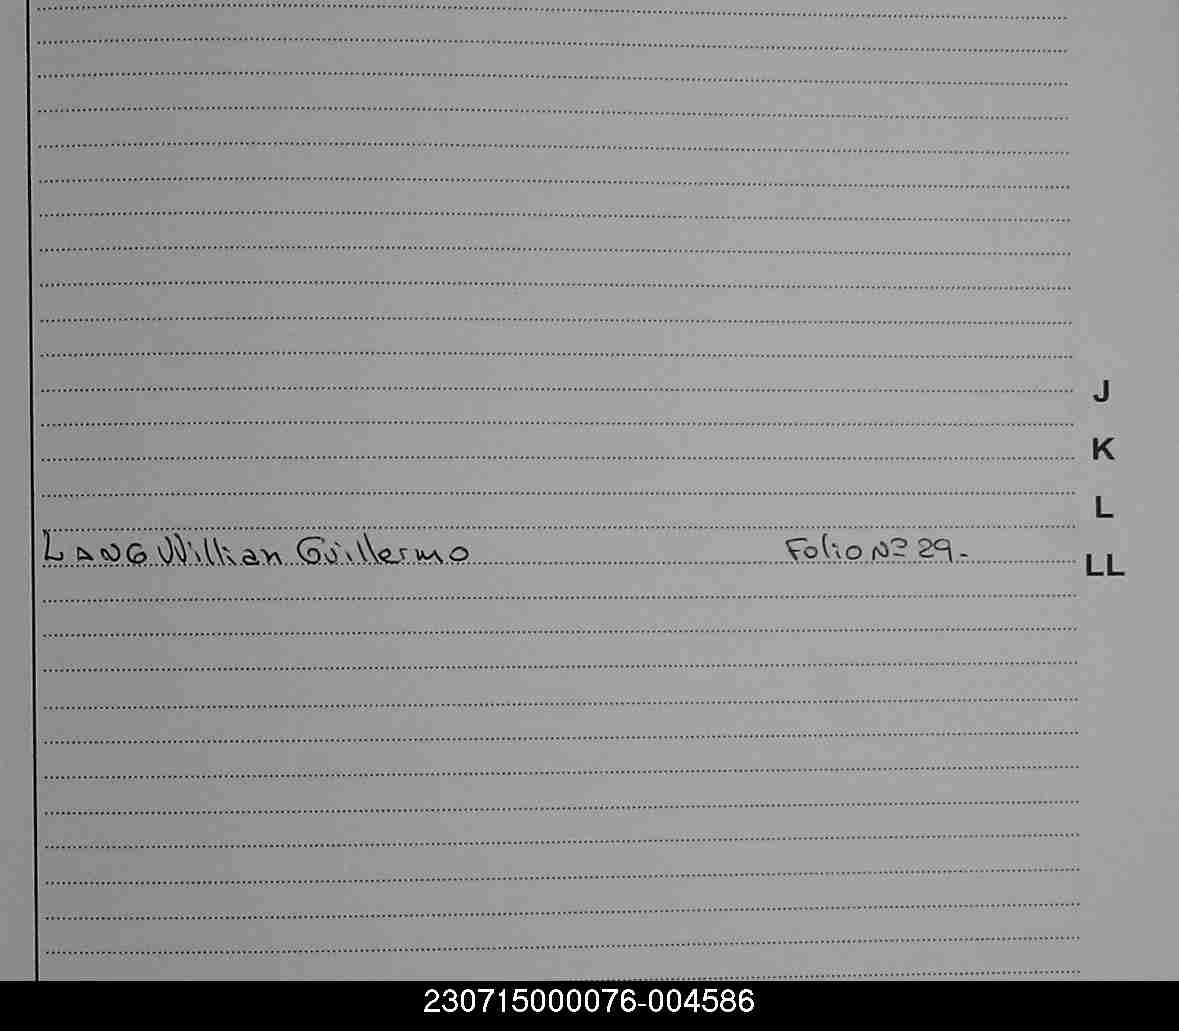 J
K
L
LANG Willian Guillermo Folio Nº 29.-
LL
230715000076-004586